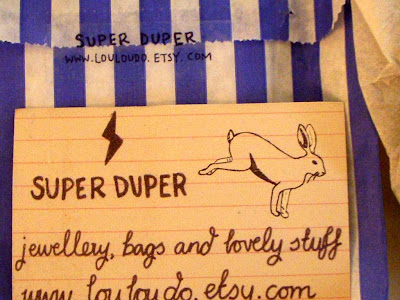 SUPER DUPER
WWW.LOULOUDO.ETSY.COM
SUPER DUPER
jewellery, bags and lovely stuff
www.louloudo.etsy.com